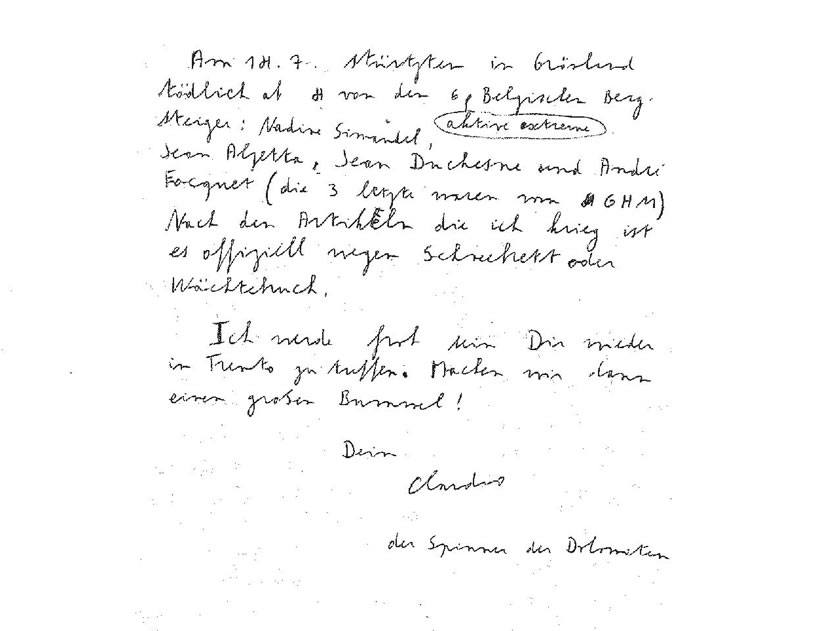 Am 14.7. stürtzten in Grönland
tödlich ab 4 von den 6, Belgischen Berg-
steiger: Nadine Simandel, aktive extreme
Jean Aljetta, Jean Duchesne und André
Facquet (die 3 letzte waren von GHM)
Nach den Artikeln die ich krieg ist
es offiziell wegen Schlechett oder
Wächtebruch.
Ich werde froh sein Dir wieder
in Trento zu treffen. Machen wir dann
einen großen Bummel!
Dein
Claudio
der Spinner der Dolomiten